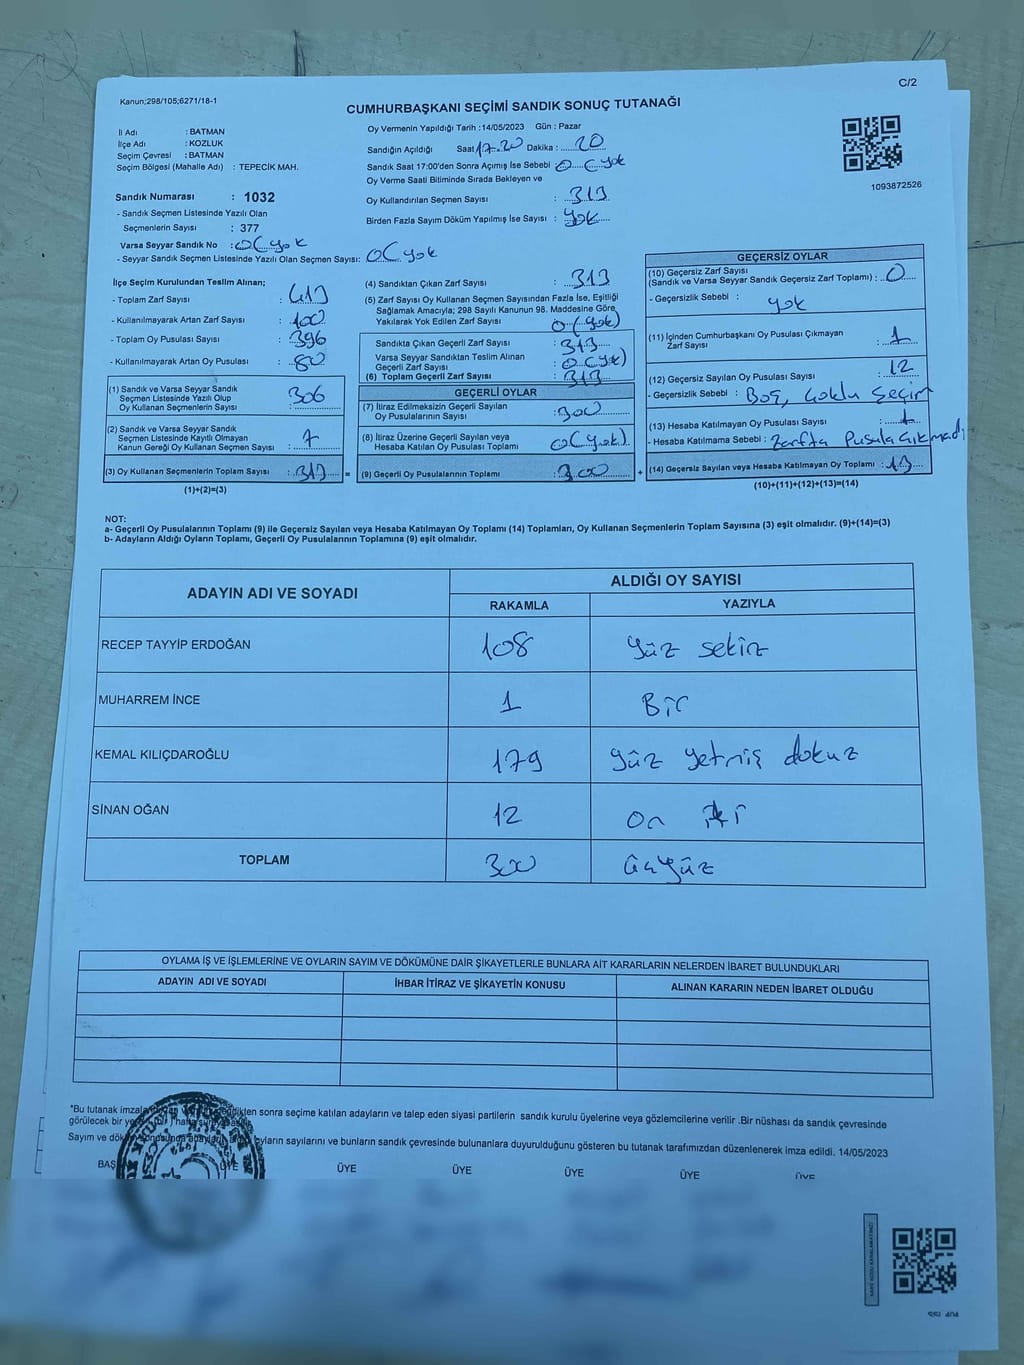 C/2
Kanun;298/105;6271/18-1
CUMHURBAŞKANI SEÇİMİ SANDIK SONUÇ TUTANAĞI
İl Adı : BATMAN
İlçe Adı : KOZLUK
Seçim Çevresi : BATMAN
Seçim Bölgesi (Mahalle Adı) : TEPECİK MAH.
Sandık Numarası : 1032
- Sandık Seçmen Listesinde Yazılı Olan
Seçmenlerin Sayısı : 377
Varsa Seyyar Sandık No : 0 (yok
- Seyyar Sandık Seçmen Listesinde Yazılı Olan Seçmen Sayısı: 0 (yok
Oy Vermenin Yapıldığı Tarih :14/05/2023 Gün : Pazar
Sandığın Açıldığı Saat 17.20 Dakika : 20
Sandık Saat 17:00'den Sonra Açımış İse Sebebi 0 (yok
Oy Verme Saati Bitiminde Sırada Bekleyen ve
Oy Kullandırılan Seçmen Sayısı : 313
Birden Fazla Sayım Döküm Yapılmış İse Sayısı : yok
1093872526
İlçe Seçim Kurulundan Teslim Alınan;
- Toplam Zarf Sayısı : 413
- Kullanılmayarak Artan Zarf Sayısı : 100
- Toplam Oy Pusulası Sayısı : 396
- Kullanılmayarak Artan Oy Pusulası : 80
(1) Sandık ve Varsa Seyyar Sandık
Seçmen Listesinde Yazılı Olup
Oy Kullanan Seçmenlerin Sayısı : 306
(2) Sandık ve Varsa Seyyar Sandık
Seçmen Listesinde Kayıtlı Olmayan
Kanun Gereği Oy Kullanan Seçmen Sayısı : 7
(3) Oy Kullanan Seçmenlerin Toplam Sayısı : 313 =
(1)+(2)=(3)
(4) Sandıktan Çıkan Zarf Sayısı : 313
(5) Zarf Sayısı Oy Kullanan Seçmen Sayısından Fazla İse, Eşitliği
Sağlamak Amacıyla; 298 Sayılı Kanunun 98. Maddesine Göre
Yakılarak Yok Edilen Zarf Sayısı : 0 (yok)
Sandıkta Çıkan Geçerli Zarf Sayısı : 313
Varsa Seyyar Sandıktan Teslim Alınan
Geçerli Zarf Sayısı : 0 (yok)
(6) Toplam Geçerli Zarf Sayısı : 313
GEÇERLİ OYLAR
(7) İtiraz Edilmeksizin Geçerli Sayılan
Oy Pusulalarının Sayısı : 300
(8) İtiraz Üzerine Geçerli Sayılan veya
Hesaba Katılan Oy Pusulası Toplamı 0 (yok)
(9) Geçerli Oy Pusulalarının Toplamı : 300 +
GEÇERSİZ OYLAR
(10) Geçersiz Zarf Sayısı
(Sandık ve Varsa Seyyar Sandık Geçersiz Zarf Toplamı) : 0
- Geçersizlik Sebebi : yok
(11) İçinden Cumhurbaşkanı Oy Pusulası Çıkmayan
Zarf Sayısı : 1
(12) Geçersiz Sayılan Oy Pusulası Sayısı : 12
- Geçersizlik Sebebi : Boş, Çoklu Seçim
(13) Hesaba Katılmayan Oy Pusulası Sayısı :
- Hesaba Katılmama Sebebi : Zarfta Pusula Çıkmadı
(14) Geçersiz Sayılan veya Hesaba Katılmayan Oy Toplamı : 13
(10)+(11)+(12)+(13)=(14)
NOT:
a- Geçerli Oy Pusulalarının Toplamı (9) ile Geçersiz Sayılan ve Hesaba Katılmayan Oy Toplamı (14) Toplamları, Oy Kullanan Seçmenlerin Toplam Sayısına (3) eşit olmalıdır. (9)+(14)=(3)
b- Adayların Aldığı Oyların Toplamı, Geçerli Oy Pusulalarının Toplamına (9) eşit olmalıdır.
ADAYIN ADI VE SOYADI ALDIĞI OY SAYISI
RAKAMLA YAZIYLA
RECEP TAYYİP ERDOĞAN 108 yüz sekiz
MUHARREM İNCE 1 Bir
KEMAL KILIÇDAROĞLU 179 yüz yetmiş dokuz
SİNAN OĞAN 12 on iki
TOPLAM 300 üçyüz
OYLAMA İŞ VE İŞLEMLERİNE VE OYLARIN SAYIM VE DÖKÜMÜNE DAİR ŞİKAYETLERLE BUNLARA AİT KARARLARIN NELERDEN İBARET BULUNDUKLARI
ADAYIN ADI VE SOYADI İHBAR İTİRAZ VE ŞİKAYETİN KONUSU ALINAN KARARIN NEDEN İBARET OLDUĞU
*Bu tutanak sonra seçime katılan adayların ve talep eden siyasi partilerin sandık kurulu üyelerine veya gözlemcilerine verilir .Bir nüshası da sandık çevresinde
görülecek bir
Sayım ve oyların sayılarını ve bunların sandık çevresinde bulunanlara duyurulduğunu gösteren bu tutanak tarafımızdan düzenlenerek imza edildi. 14/05/2023
ÜYE ÜYE ÜYE ÜYE ÜYE ÜYE